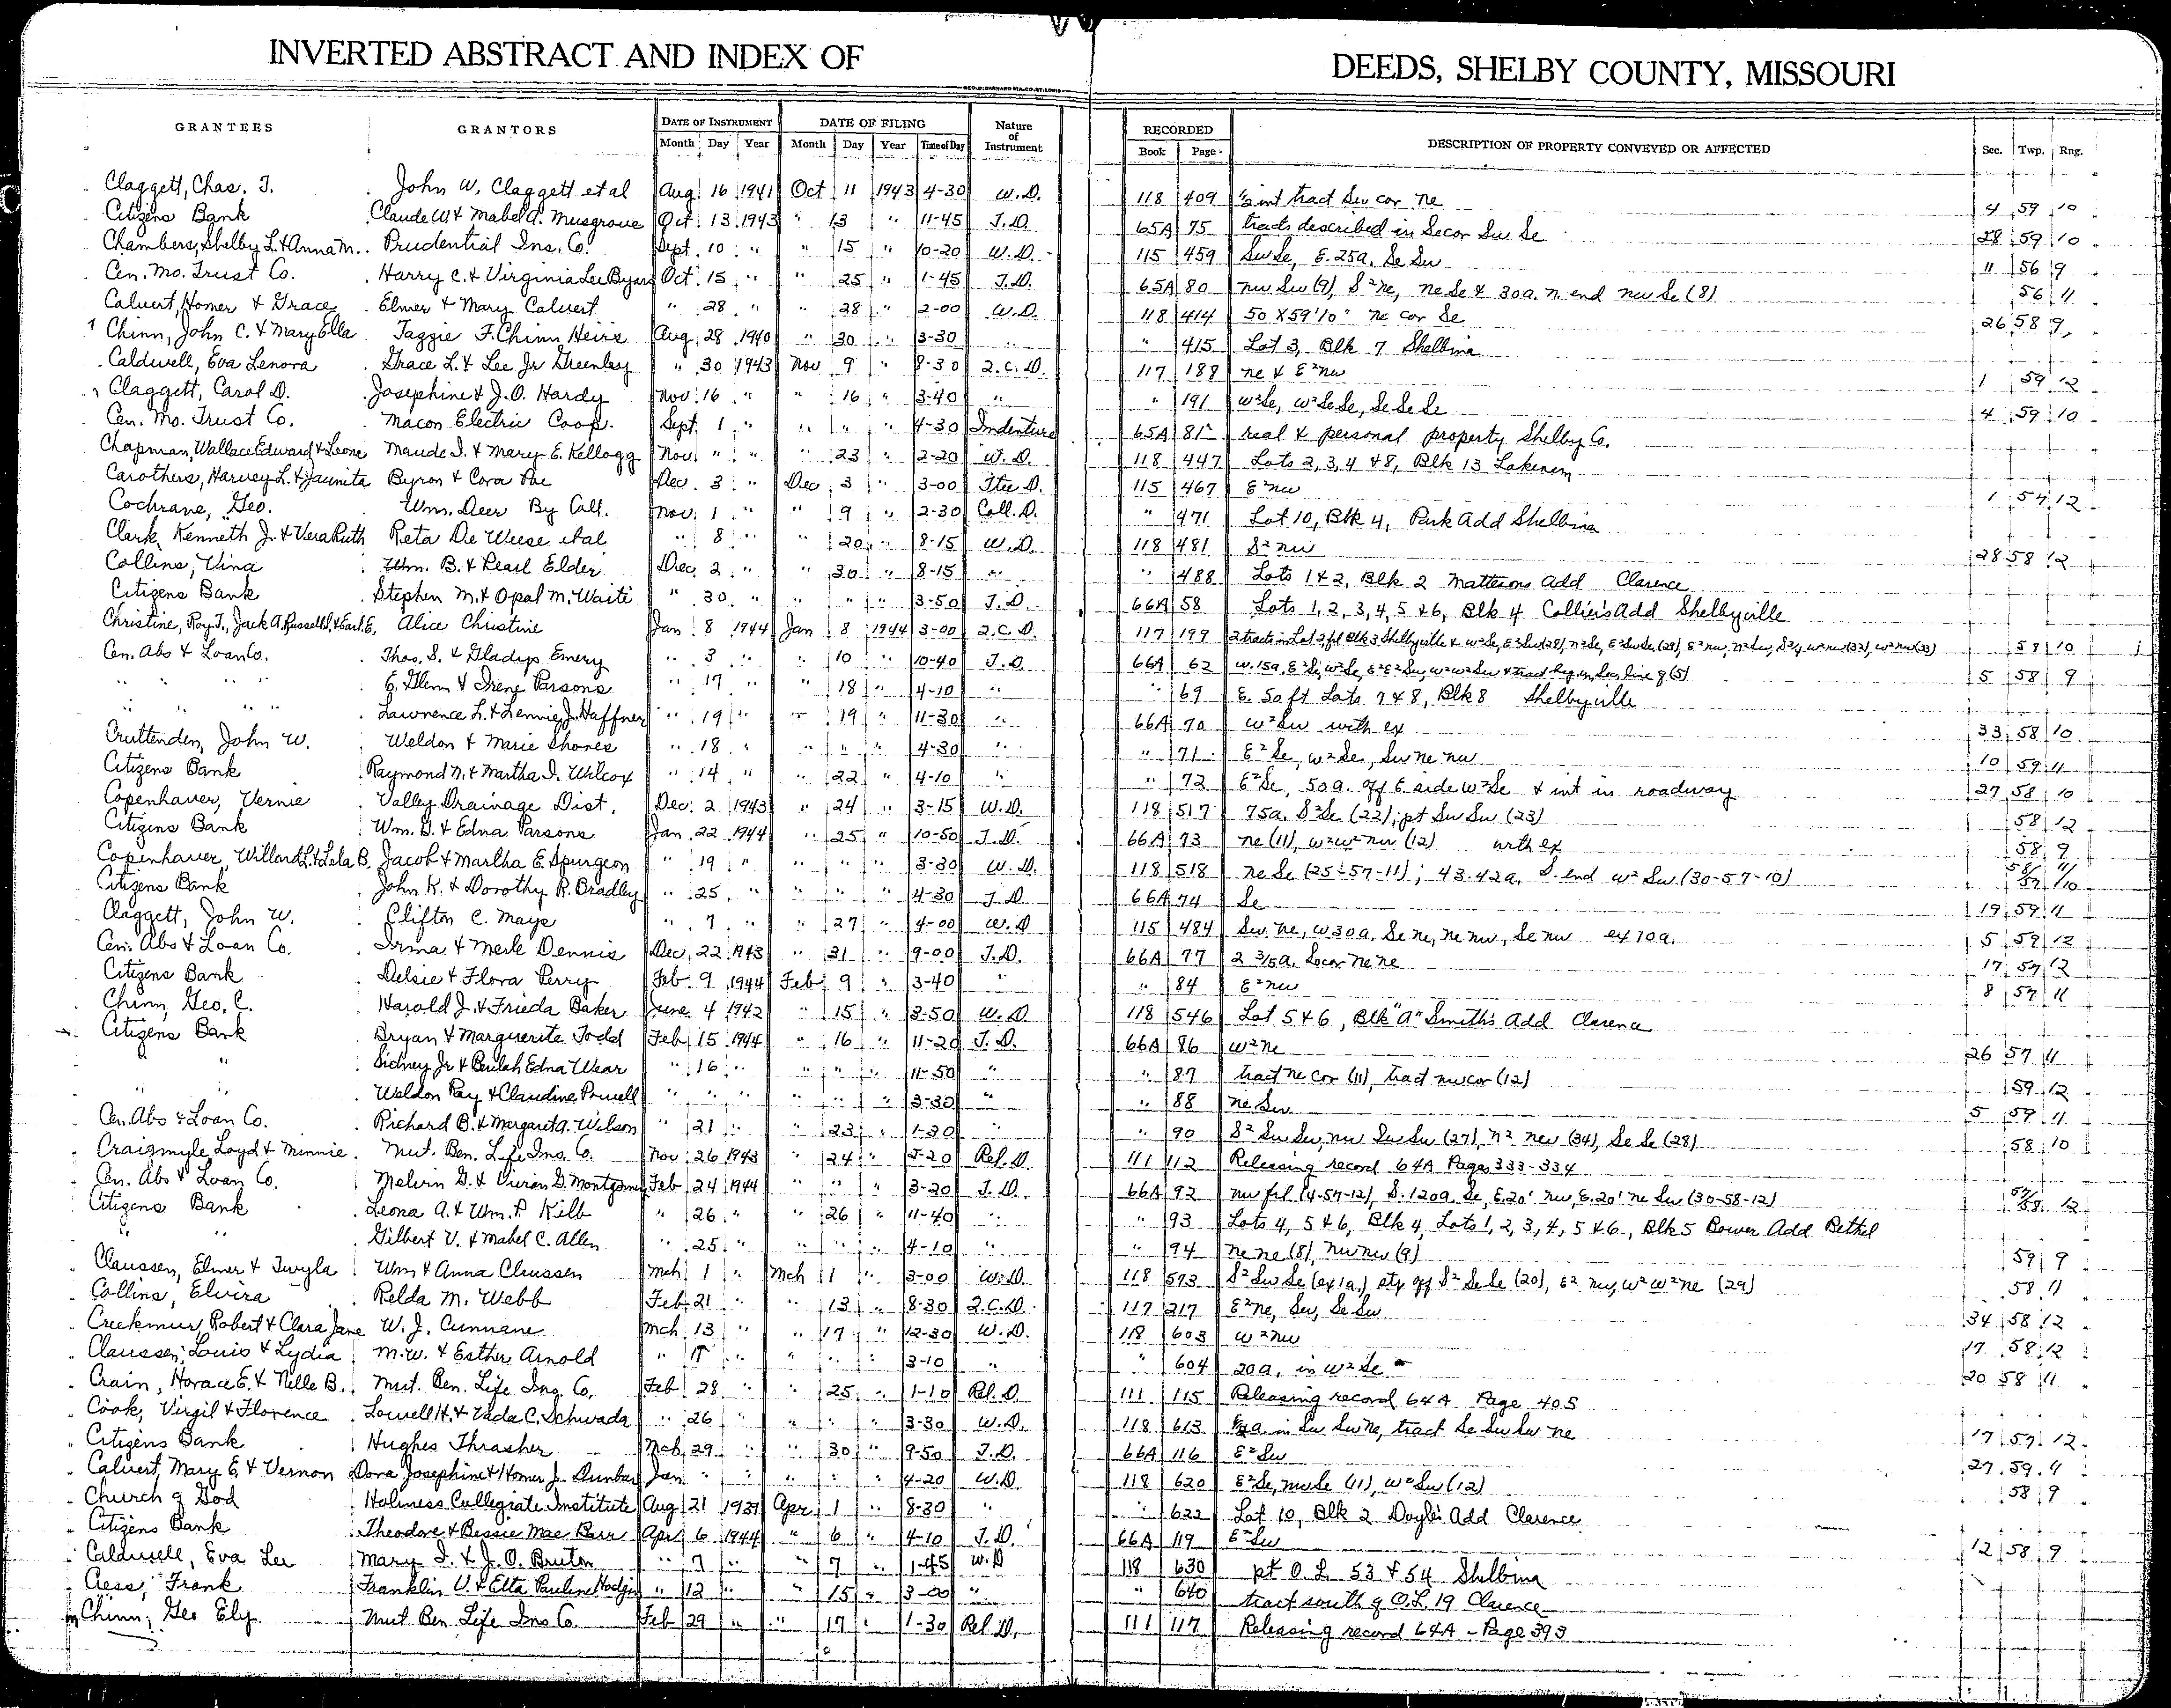 INVERTED ABSTRACT AND INDEX OF DEEDS, SHELBY COUNTY, MISSOURI
GEO. D. BARNARD STA. CO. ST. LOUIS
GRANTEES GRANTORS DATE OF INSTRUMENT DATE OF FILING Nature of Instrument RECORDED DESCRIPTION OF PROPERTY CONVEYED OR AFFECTED Sec. Twp. Rng.
Month Day Year Month Day Year Time of Day Book Page
Claggett, Chas. T. John W. Claggett et al Aug 16 1941 Oct 11 1943 4-30 W.D. 118 409 ½ int tract Sw cor ne 4 59 10
Citizens Bank Claude W & Mabel A. Musgrove Oct. 13 1943 " 13 " 11-45 T.D. 65A 75 tracts described in Secor Sw Se 28 59 10
Chambers, Shelby L. & Anna M. Prudential Ins. Co. Sept. 10 " " 15 " 10-20 W.D. 115 459 Sw Se, E. 25a. Se Sw 11 56 9
Cen. Mo. Trust Co. Harry C. & Virginia Lee Byars Oct. 15 " " 25 " 1-45 T.D. 65A 80 nw Sw (9), S² ne, ne Se & 30a. n. end nw Se (8) 56 11
Calvert, Homer & Grace Elmer & Mary Calvert " 28 " " 28 " 2-00 W.D. 118 414 50 X 59'10" ne cor Se 26 58 9
Chinn, John C. & Mary Ella Tazzie F. Chinn Heirs Aug. 28 1940 " 30 " 3-30 " " 415 Lot 3, Blk 7 Shelbina
Caldwell, Eva Lenora Grace L. & Lee Jr Greenley " 30 1943 Nov 9 " 8-30 Q.C.D. 117 188 ne & E² nw 1 59 12
Claggett, Carol D. Josephine & J.O. Hardy Nov. 16 " " 16 " 3-40 " " 191 w² Se, w² Se Se, Se Se Se 4 59 10
Cen. Mo. Trust Co. Macon Electric Coop. Sept. 1 " " " " 4-30 Indenture 65A 81 real & personal property Shelby Co.
Chapman, Wallace Edward & Leona Maude I. & Mary E. Kellogg Nov " " " 23 " 2-20 W.D. 118 447 Lots 2, 3, 4 & 8, Blk 13 Lakenan
Carothers, Harvey L. & Jaunita Byron & Cora Poe Dec. 3 " Dec 3 " 3-00 Ttee D. 115 467 E² nw 1 57 12
Cochrane, Geo. Wm. Deer By Coll. Nov. 1 " " 9 " 2-30 Coll. D. " 471 Lot 10, Blk 4, Park Add Shelbina
Clark, Kenneth J. & Vera Ruth Reta De Weese et al " 8 " " 20 " 8-15 W.D. 118 481 S² nw 28 58 12
Collins, Vina Wm. B. & Pearl Elder Dec. 2 " " 30 " 8-15 " " 488 Lots 1 & 2, Blk 2 Mattesons Add Clarence
Citizens Bank Stephen M. & Opal M. Waite " 30 " " " " 3-50 T.D. 66A 58 Lots 1, 2, 3, 4, 5 & 6, Blk 4 Collier's Add Shelbyville
Christine, Roy T., Jack A, Russell I. & Earl E. Alice Christine Jan 8 1944 Jan 8 1944 3-00 Q.C.D. 117 199 2 tracts in Lot 2, fl Blk 3 Shelbyville & w² Se, E² Sw (28), n² Se, E² Sw Se (29), E² nw, n² Sw, w² nw (32), w² nw (33) 58 10
Cen. Abs & Loan Co. Thos. S. & Gladys Emery " 3 " " 10 " 10-40 T.D. 66A 62 w. 15a. E² Se, w² Se, E² E² Sw, w² w² Sw & tract (5) 5 58 9
" " " " E. Glenn & Irene Parsons " 17 " " 18 " 4-10 " " 69 E. 50 ft Lots 7 & 8, Blk 8 Shelbyville
" " " " Lawrence L. & Lennie J. Haffner " 19 " " 19 " 11-30 " 66A 70 w² Sw with ex 33 58 10
Cruttenden, John W. Weldon & Marie Shores " 18 " " " " 4-30 " " 71 E² Se, w² Se, Sw ne nw 10 59 11
Citizens Bank Raymond N. & Martha I. Wilcox " 14 " " 22 " 4-10 " " 72 E² Se, 50a. off E side w² Se & int in roadway 27 58 10
Copenhaver, Vernie Valley Drainage Dist. Dec. 2 1943 " 24 " 3-15 W.D. 118 517 75a. S² Se (22); pt Sw Sw (23) 58 12
Citizens Bank Wm. G. & Edna Parsons Jan 22 1944 " 25 " 10-50 T.D. 66A 73 ne (11), w² w² nw (12) with ex 58 9
Copenhaver, Willard L. & Lela B. Jacob & Martha E. Spurgeon " 19 " " " " 3-30 W.D. 118 518 ne Se (25-57-11); 43.42a. S. end w² Sw (30-57-10) 58/57 11/10
Citizens Bank John K. & Dorothy R. Bradley " 25 " " " " 4-30 T.D. 66A 74 Se 19 59 11
Claggett, John W. Clifton C. Maye " 7 " " 27 " 4-00 W.D 115 484 Sw ne, w 30a. Se ne, ne nw, Se nw ex 10a. 5 59 12
Cen. Abs & Loan Co. Irma & Merle Dennis Dec. 22 1943 " 31 " 9-00 T.D. 66A 77 2 3/5a. Secor ne ne 17 57 12
Citizens Bank Delsie & Flora Perry Feb. 9 1944 Feb 9 " 3-40 " " 84 E² nw 8 57 11
Chinn, Geo. C. Harold J. & Frieda Baker June 4 1942 " 15 " 8-50 W.D. 118 546 Lot 5 & 6, Blk "A" Smith's Add Clarence
Citizens Bank Bryan & Marguerite Todd Feb 15 1944 " 16 " 11-20 T.D. 66A 86 w² ne 26 57 11
" Sidney Jr & Beulah Edna Wear " 16 " " " " 11-50 " " 87 tract ne cor (11), tract nw cor (12) 59 12
" " Weldon Ray & Claudine Powell " " " " " " 3-30 " " 88 ne Sw 5 59 11
Cen. Abs & Loan Co. Richard B. & Margaret A. Wilson " 21 " " 23 " 1-30 " " 90 S² Sw Sw, nw Sw Sw (27), n² new (34), Se Se (28) 58 10
Craigmyle, Loyd & Minnie Mut. Ben. Life Ins. Co. Nov. 26 1943 " 24 " 3-20 Rel. D. 111 112 Releasing record 64A Pages 333-334
Cen. Abs & Loan Co. Melvin G. & Vivian G. Montgomery Feb 24 1944 " " " 3-20 T.D. 66A 92 nw frl (4-57-12), S. 120a. Se, E. 20' nw, E. 20' ne Sw (30-58-12) 57/58 12
Citizens Bank Leona A. & Wm. P. Kilb " 26 " " 26 " 11-40 " " 93 Lots 4, 5 & 6, Blk 4, Lots 1, 2, 3, 4, 5 & 6, Blk 5 Bower Add Bethel
" " Gilbert V. & Mabel C. Allen " 25 " " " " 4-10 " " 94 ne ne (8), nw nw (9) 59 9
Claussen, Elmer & Twyla Wm & Anna Claussen Mch 1 " Mch 1 " 3-00 W.D. 118 573 S² Sw Se (ex 1a.) stp off S² Se Se (20), E² nw, w² w² ne (29) 58 11
Collins, Elvira Relda M. Webb Feb. 21 " " 13 " 8-30 Q.C.D. 117 217 E² ne, Sw, Se Sw 34 58 12
Creekmur, Robert & Clara Jane W. J. Cunnane Mch. 13 " " 17 " 12-30 W.D. 118 603 w² nw 17 58 12
Claussen, Louis & Lydia M. W. & Esther Arnold " 17 " " " " 3-10 " " 604 20a. in w² Se 20 58 11
Crain, Horace E. & Nelle B. Mut. Ben. Life Ins. Co. Feb 28 " " 25 " 1-10 Rel. D. 111 115 Releasing record 64A Page 405
Cook, Virgil & Florence Lowell H. & Vada C. Schwada " 26 " " " " 3-30 W.D. 118 613 ½a. in Sw Sw ne, tract Se Sw Sw ne 17 57 12
Citizens Bank Hughes Thrasher Mch 29 " " 30 " 9-50 T.D. 66A 116 E² Sw 27 59 11
Calvert, Mary E. & Vernon Dora Josephine & Homer J. Dunbar Jan " " " " " 4-20 W.D. 118 620 E² Se, nw Se (11), w² Sw (12) 58 9
Church of God Holiness Collegiate Institute Aug 21 1937 Apr 1 " 8-30 " " 622 Lot 10, Blk 2 Doyle's Add Clarence
Citizens Bank Theodore & Bessie Mae Barr Apr 6 1944 " 6 " 4-10 T.D. 66A 119 E² Sw 12 58 9
Caldwell, Eva Lee Mary I. & J. O. Bruton " 7 " " 7 " 1-45 W.D 118 630 pt O.L. 53 & 54 Shelbina
Cress, Frank Franklin V. & Elta Pauline Hodges " 12 " " 15 " 3-00 " " 640 tract south of O.L. 19 Clarence
Chinn, Geo Ely Mut Ben Life Ins Co. Feb 29 " " 17 " 1-30 Rel. D. 111 117 Releasing record 64A - Page 393